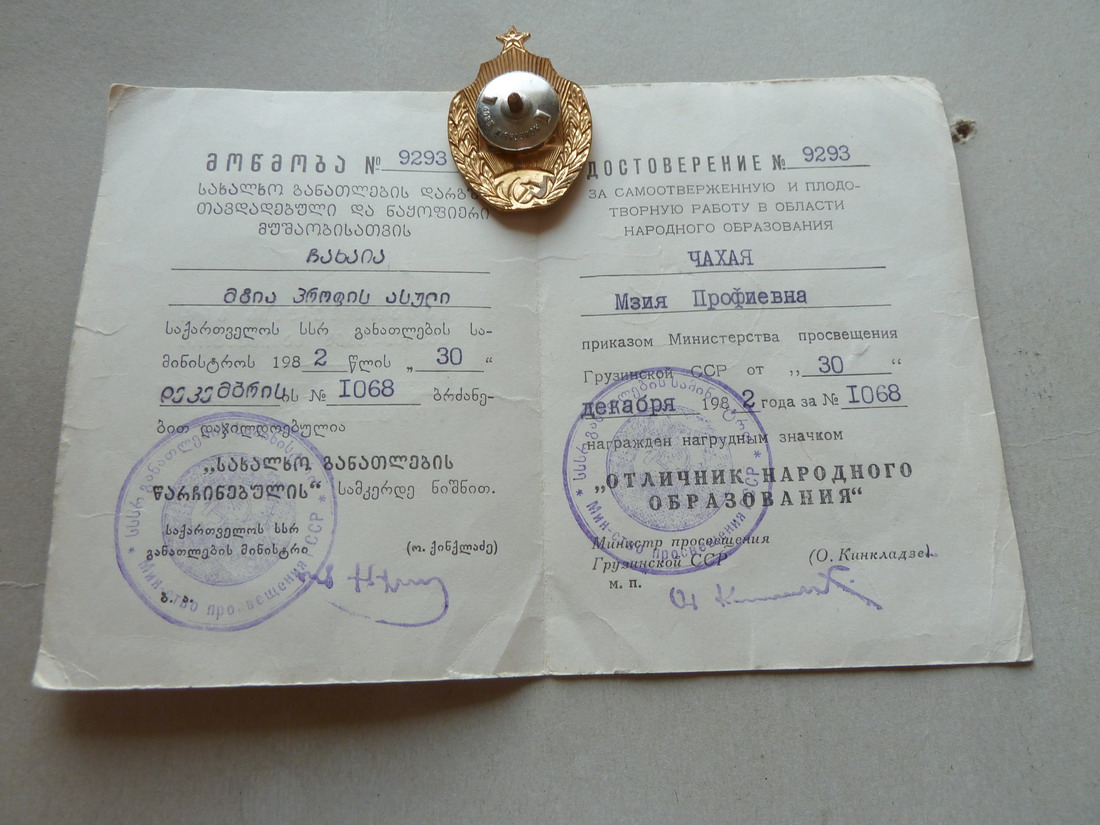 მოწმობა № 9293
სახალხო განათლების დარგში
თავდადებული და ნაყოფიერი
მუშაობისათვის
ჩახაია
მზია პროფის ასული
საქართველოს სსრ განათლების სა-
მინისტროს 1982 წლის „30“
დეკემბრის ს № I068 ბრძანე-
ბით დაჯილდოებულია
„სახალხო განათლების
წარჩინებულის“ სამკერდე ნიშნით.
საქართველოს სსრ
განათლების მინისტრი
(ო. ქინქლაძე)
ბ. ა.
ДОСТОВЕРЕНИЕ № 9293
ЗА САМООТВЕРЖЕННУЮ И ПЛОДО-
ТВОРНУЮ РАБОТУ В ОБЛАСТИ
НАРОДНОГО ОБРАЗОВАНИЯ
ЧАХАЯ
Мзия Профиевна
приказом Министерства просвещения
Грузинской ССР от „30“
декабря 1982 года за № I068
награжден нагрудным значком
„ОТЛИЧНИК НАРОДНОГО
ОБРАЗОВАНИЯ“
Министр просвещения
Грузинской ССР
(О. Кинкладзе).
м. п.